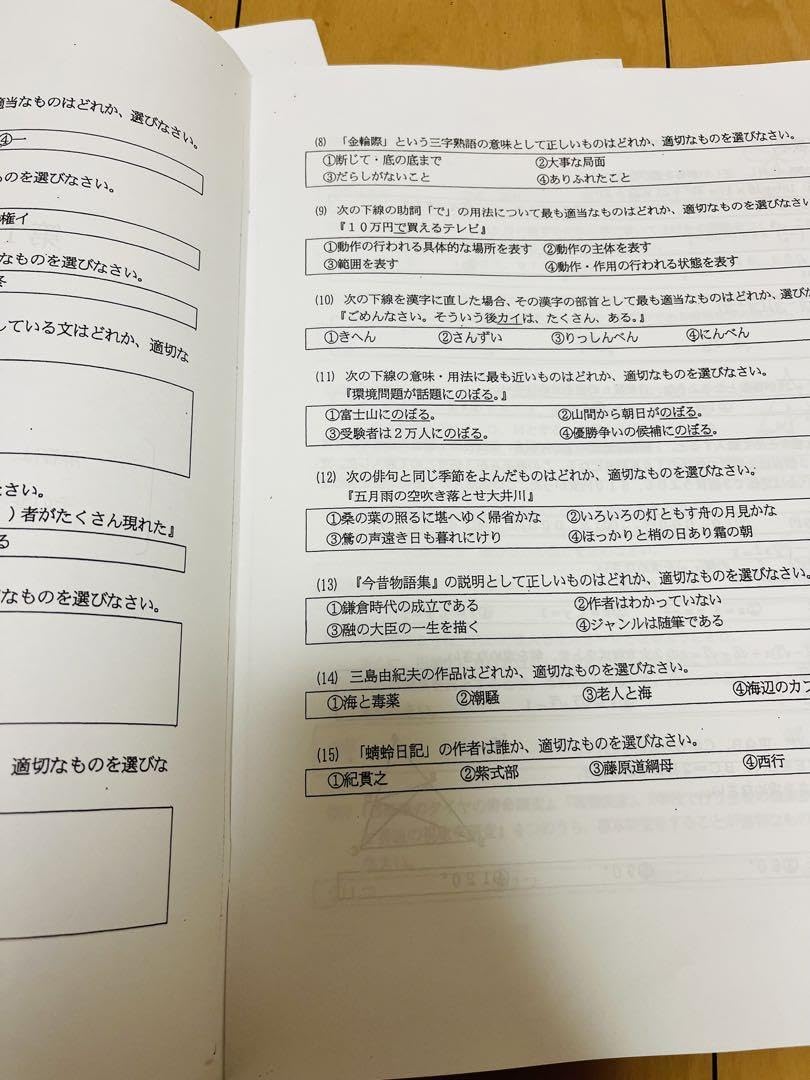 適当なものはどれか、選びなさい。
④一
ものを選びなさい。
権イ
なものを選びなさい。
している文はどれか、適切な
なさい。
）者がたくさん現れた』
る
なものを選びなさい。
適切なものを選びな
(8) 「金輪際」という三字熟語の意味として正しいものはどれか、適切なものを選びなさい。
①断じて・底の底まで ②大事な局面
③だらしがないこと ④ありふれたこと
(9) 次の下線の助詞「で」の用法について最も適当なものはどれか、適切なものを選びなさい
『１０万円で買えるテレビ』
①動作の行われる具体的な場所を表す ②動作の主体を表す
③範囲を表す ④動作・作用の行われる状態を表す
(10) 次の下線を漢字に直した場合、その漢字の部首として最も適当なものはどれか、選びな
『ごめんなさい。そういう後カイは、たくさん、ある。』
①きへん ②さんずい ③りっしんべん ④にんべん
(11) 次の下線の意味・用法に最も近いものはどれか、適切なものを選びなさい。
『環境問題が話題にのぼる。』
①富士山にのぼる。 ②山間から朝日がのぼる。
③受験者は２万人にのぼる。 ④優勝争いの候補にのぼる。
(12) 次の俳句と同じ季節をよんだものはどれか、適切なものを選びなさい。
『五月雨の空吹き落とせ大井川』
①桑の葉の照るに堪へゆく帰省かな ②いろいろの灯ともす舟の月見かな
③鶯の声遠き日も暮れにけり ④ほっかりと梢の日あり霜の朝
(13) 『今昔物語集』の説明として正しいものはどれか、適切なものを選びなさい。
①鎌倉時代の成立である ②作者はわかっていない
③融の大臣の一生を描く ④ジャンルは随筆である
(14) 三島由紀夫の作品はどれか、適切なものを選びなさい。
①海と毒薬 ②潮騒 ③老人と海 ④海辺のカフ
(15) 「蜻蛉日記」の作者は誰か、適切なものを選びなさい。
①紀貫之 ②紫式部 ③藤原道綱母 ④西行